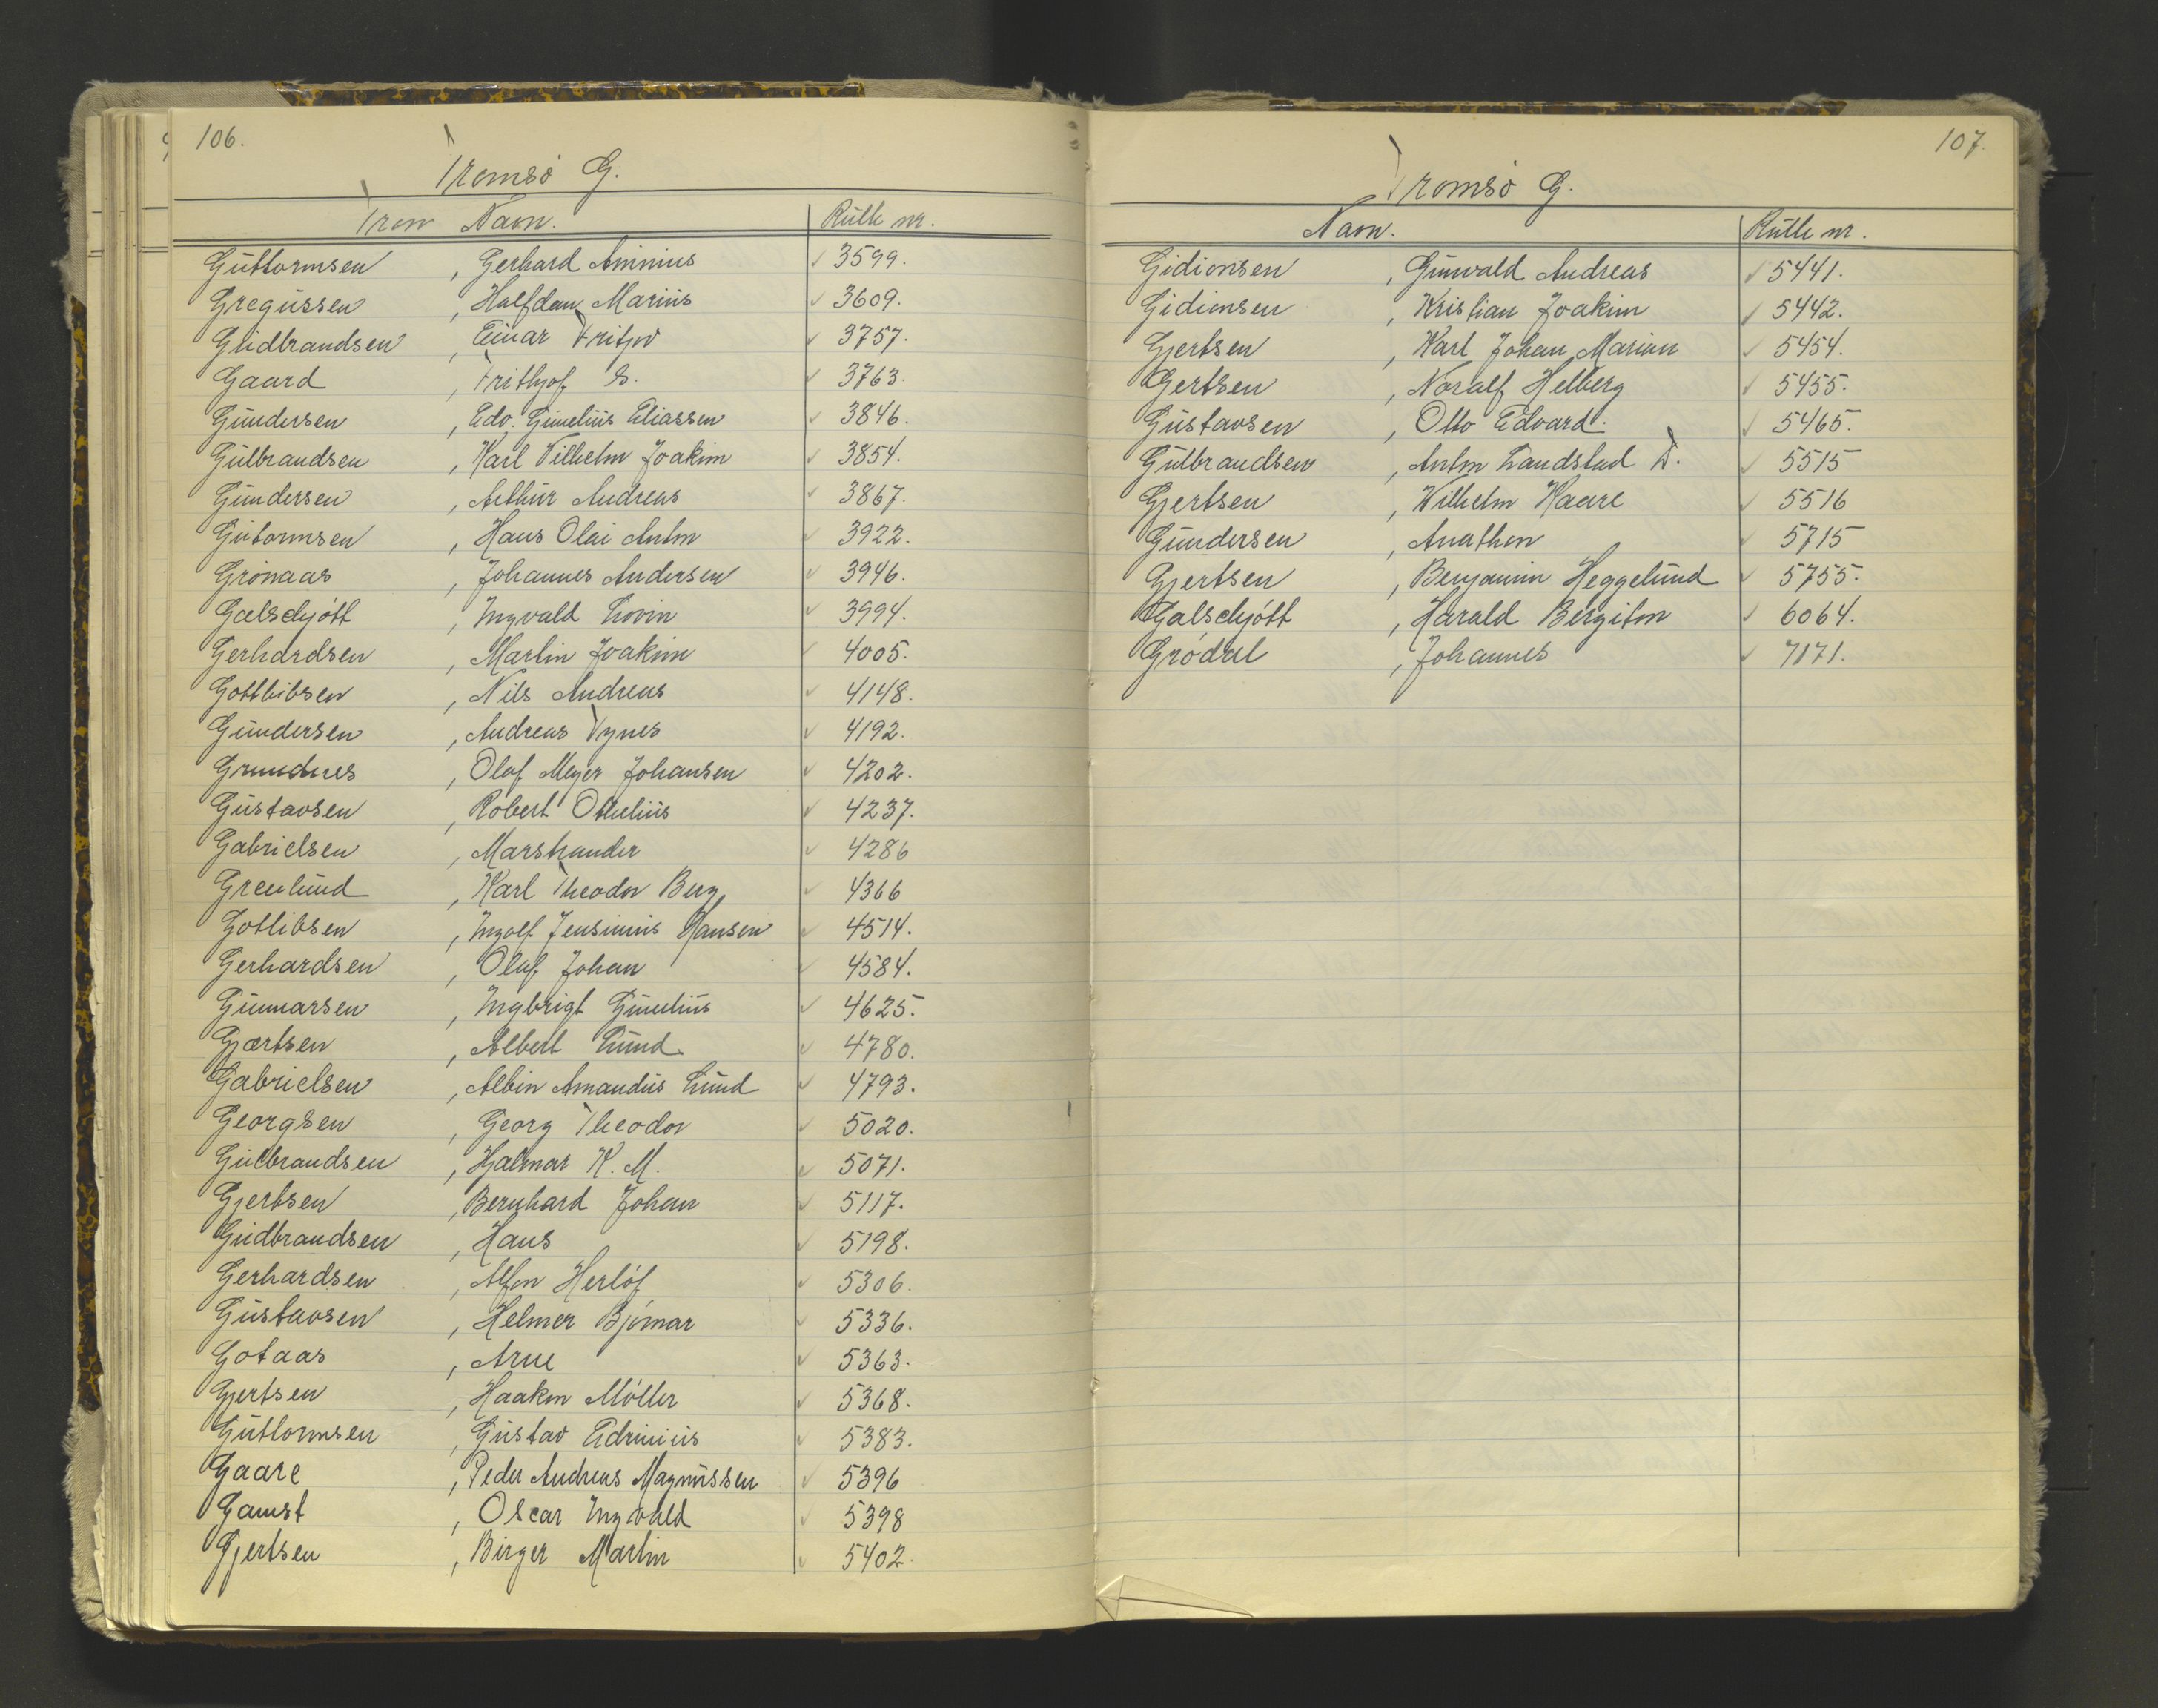 106.
Tromsø G.
Tron Navn. Rulle nr.
Guttormsen, Gerhard Aminius 3599.
Gregussen, Halfdan Marius 3609.
Gudbrandsen, Einar Fritjov 3757.
Gaard, Frithjof S. 3763.
Gundersen, Edv. Gunelius Eliassen 3846.
Gulbrandsen, Karl Vilhelm Joakim 3854.
Gundersen, Arthur Andreas 3867.
Gutormsen, Hans Olai Anton 3922.
Grønaas, Johannes Andersen 3946.
Gælschjøtt, Ingvald Lovin 3994.
Gerhardsen, Martin Joakim 4005.
Gottlibsen, Nils Andreas 4148.
Gundersen, Andreas Tynes 4192.
Grundnes, Olaf Meyer Johansen 4202.
Gustavsen, Robert Othelius 4237.
Gabrielsen, Marstrander 4286
Grenlund, Karl Theodor Berg 4366
Gotlibsen, Ingolf Jensinius Hansen 4514.
Gerhardsen, Olaf Johan 4584.
Gunnarsen, Ingbrigt Gunelius 4625.
Gjærtsen, Albert Lund 4780.
Gabrielsen, Albin Amandus Lund 4793.
Georgsen, Georg Theodor 5020.
Gulbrandsen, Hjalmar K. M. 5071.
Gjertsen, Bernhard Johan 5117.
Gudbrandsen, Hans 5198.
Gerhardsen, Alfon Herløf 5306.
Gustavsen, Helmer Bjørnar 5336.
Gotaas, Arne 5363.
Gjertsen, Haakon Møller 5368.
Guttormsen, Gustav Edminius 5383.
Gaare, Peder Andreas Magnussen 5396
Gamst, Oscar Ingvald 5398
Gjertsen, Birger Martin 5402.
107.
Tromsø G.
Navn. Rulle nr.
Gidionsen, Gunvald Andreas 5441.
Gidionsen, Kristian Joakim 5442.
Gjertsen, Karl Johan Marian 5454.
Gertsen, Noralf Helberg 5455.
Gustavsen, Otto Edvard. 5465.
Gulbrandsen, Anton Landstad T. 5515
Gjertsen, Wilhelm Kaare 5516
Gundersen, Anathon 5715
Gjertsen, Benjamin Heggelund 5755.
Galschjøtt, Harald Bergiton 6064.
Grødal, Johannes 7171.